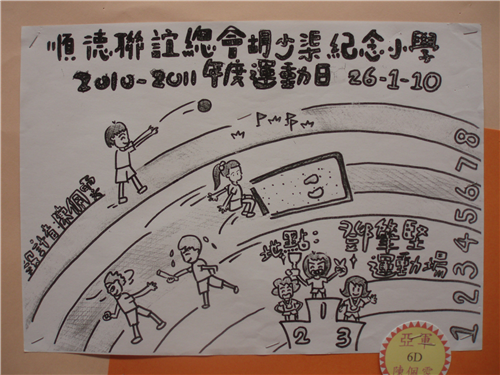 順德聯誼總會胡少渠紀念小學
2010-2011年度運動日 26-1-10
設計者:陳佩
地點: 鄧肇堅
運動場
8
7
6
5
4
3
2
1
1
2 3
亞軍
6D
陳佩